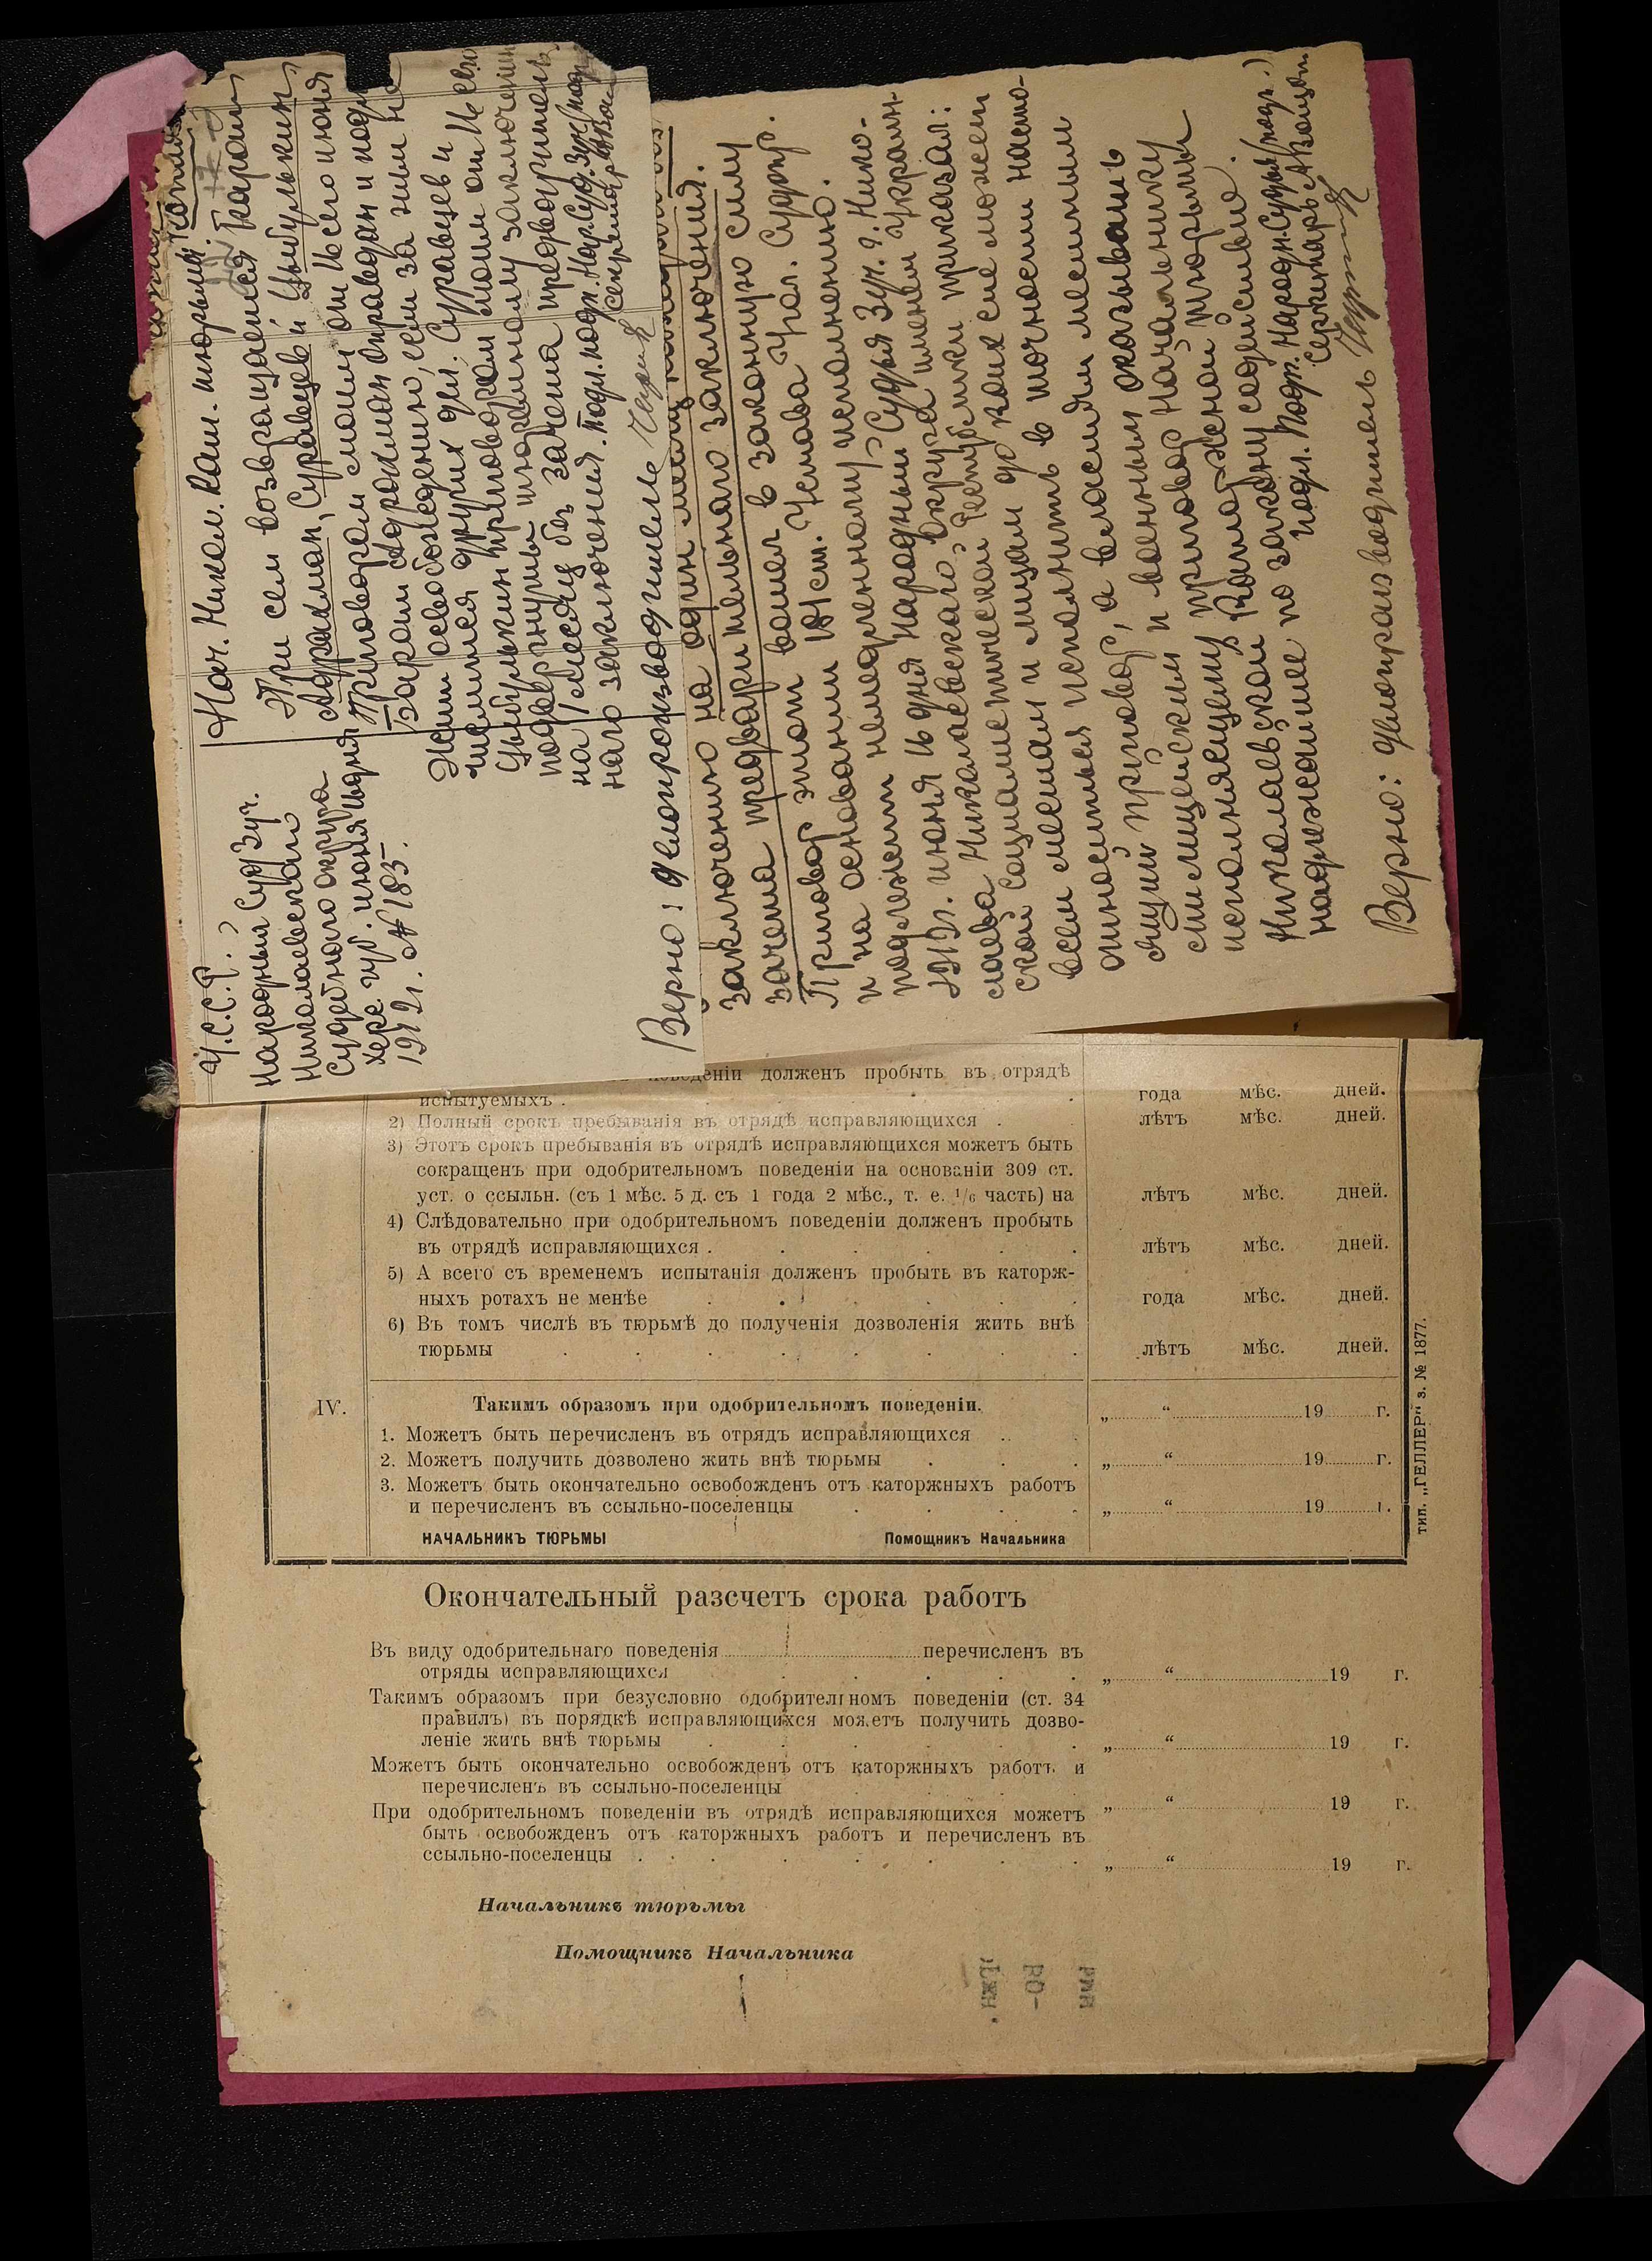 Копия
У.С.С.Р.
Народный Суд 3 уч.
Николаевскаго
Судебного округа
Херс. губ. июня 16 дня
1921. № 183.
Нач. Никол. Кат. тюрьмы.
При сем возвращаются
и Цыбулькин
Приговором моим от 16 сего июня
оправдан и
освобождению, если за ним не
числится других дел. Суравцев и
Цыбулькин приговором моим от 16 сего
подвергнуты тюремному заключению
на 1 месяц без зачета предварительнаго
наго заключения. Подл. подп. Нар. Суд. 3 уч.
Секретарь
Верно: Делопроизводитель
заключению на один месяц
зачета предварительнаго заключения.
Приговор этот вошел в законную силу
и на основании ст. Устава Угол. Судпр.
подлежит немедленному исполнению.
1921 г. июня 16 дня Народный Судья 3 уч. г. Нико-
лаева Николаевского Округа именем Украин-
ской Социалистической Республики приказал:
всем местам и лицам до коих сие может
относиться исполнить в точности насто-
ящий приговор, а властям местным
милицейским и военным оказывать
исполняющему приговор Начальнику
Николаевской Каторжной тюрьмы
надлежащее по закону содействие.
подл. подп. Народн. Судья (подп.)
Секретарь
Верно: Делопроизводитель
поведеніи долженъ пробыть въ отрядѣ
испытуемыхъ . года мѣс. дней.
2) Полный срокъ пребыванія въ отрядѣ исправляющихся . лѣтъ мѣс. дней.
3) Этотъ срокъ пребыванія въ отрядѣ исправляющихся можетъ быть
сокращенъ при одобрительномъ поведеніи на основаніи 309 ст.
уст. о ссыльн. (съ 1 мѣс. 5 д. съ 1 года 2 мѣс., т. е. 1/6 часть) на лѣтъ мѣс. дней.
4) Слѣдовательно при одобрительномъ поведеніи долженъ пробыть
въ отрядѣ исправляющихся . лѣтъ мѣс. дней.
5) А всего съ временемъ испытанія долженъ пробыть въ каторж-
ныхъ ротахъ не менѣе года мѣс. дней.
6) Въ томъ числѣ въ тюрьмѣ до полученія дозволенія жить внѣ
тюрьмы лѣтъ мѣс. дней.
IV. Такимъ образомъ при одобрительномъ поведеніи.
1. Можетъ быть перечисленъ въ отрядъ исправляющихся „ “ 19 г.
2. Можетъ получить дозволено жить внѣ тюрьмы „ “ 19 г.
3. Можетъ быть окончательно освобожденъ отъ каторжныхъ работъ
и перечисленъ въ ссыльно-поселенцы „ “ 19 г.
НАЧАЛЬНИКЪ ТЮРЬМЫ Помощникъ Начальника
тип. „ГЕЛЛЕР“ з. № 1877.
Окончательный разсчетъ срока работъ
Въ виду одобрительнаго поведенія перечисленъ въ
отряды исправляющихся „ “ 19 г.
Такимъ образомъ при безусловно одобрителгномъ поведеніи (ст. 34
правилъ) въ порядкѣ исправляющихся можетъ получить дозво-
леніе жить внѣ тюрьмы „ “ 19 г.
Можетъ быть окончательно освобожденъ отъ каторжныхъ работъ и
перечисленъ въ ссыльно-поселенцы „ “ 19 г.
При одобрительномъ поведеніи въ отрядѣ исправляющихся можетъ
быть освобожденъ отъ каторжныхъ работъ и перечисленъ въ
ссыльно-поселенцы . „ “ 19 г.
Начальникъ тюрьмы
Помощникъ Начальника